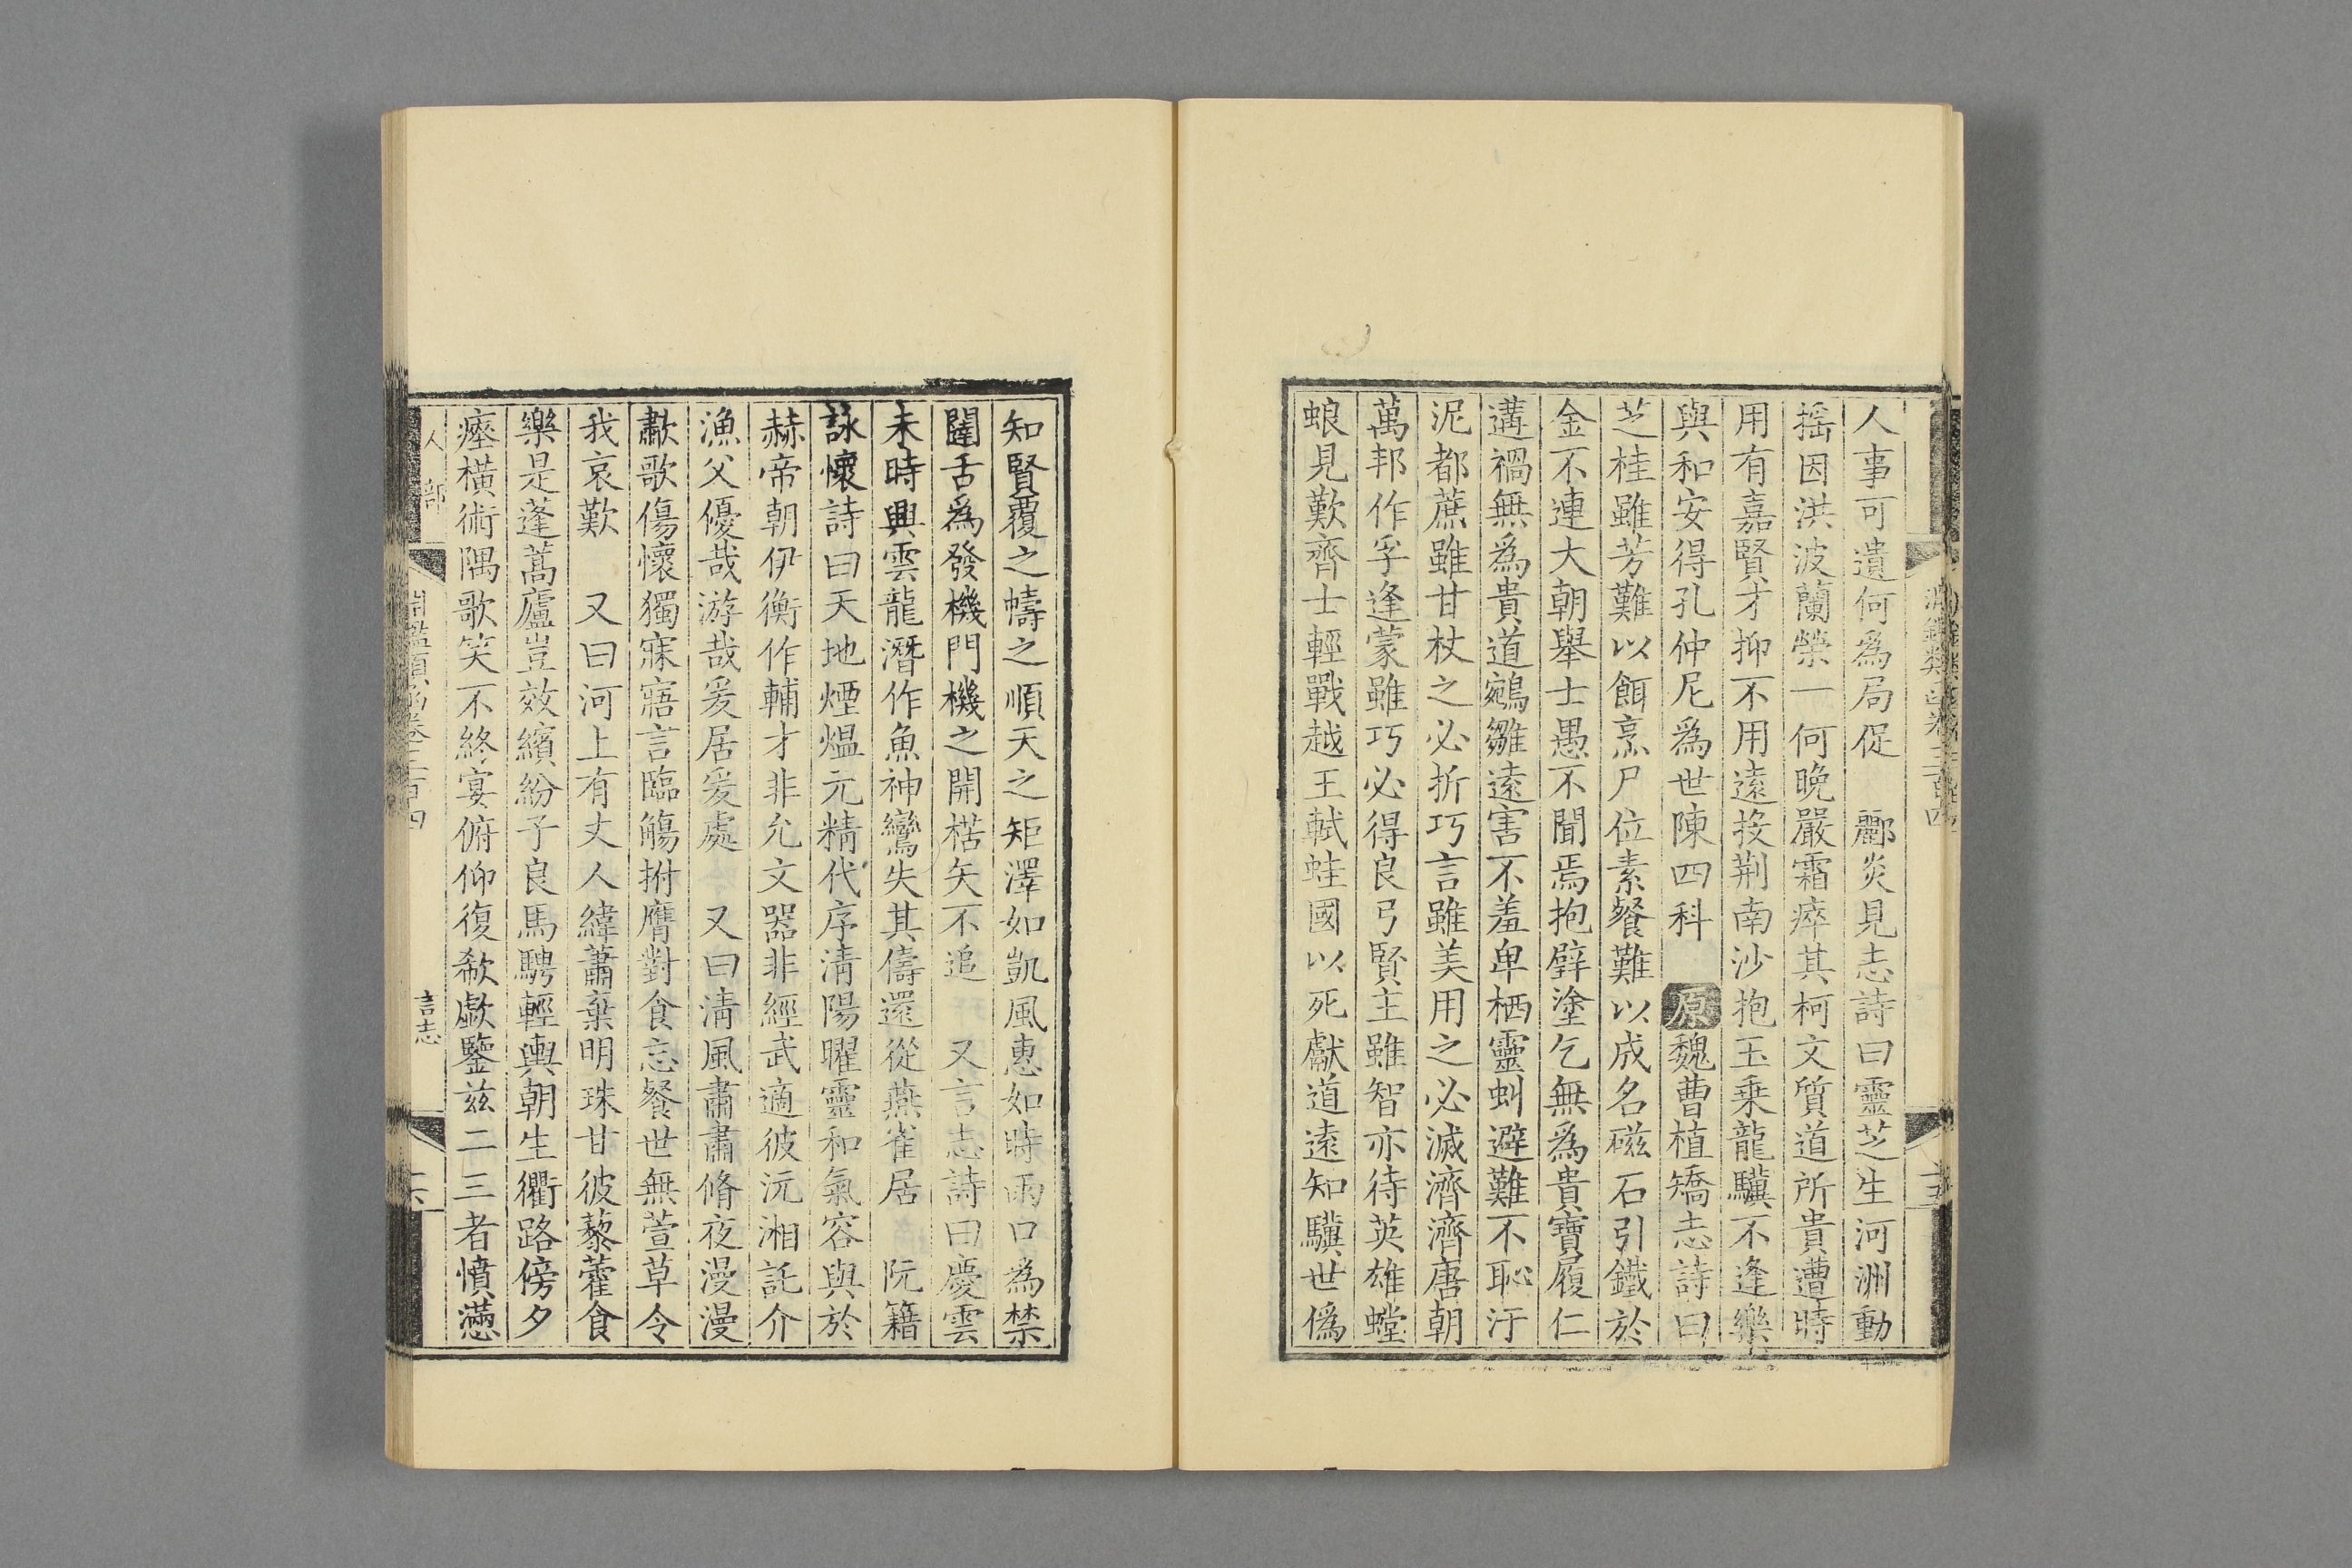 人事可遺何爲局促　酈炎見志詩曰靈芝生河洲動
搖因洪波蘭榮一何晚嚴霜瘁其柯文質道所貴遭時
用有嘉賢才抑不用遠投荆南沙抱玉乗龍驥不逢樂
與和安得孔仲尼爲世陳四科　原魏曹植矯志詩曰
芝桂雖芳難以餌烹尸位素餐難以成名磁石引鐵於
金不連大朝舉士愚不聞焉抱璧塗乞無爲貴寶履仁
遘禍無爲貴道鵷雛遠害不羞卑栖靈虬避難不恥汙
泥都蔗雖甘杖之必折巧言雖美用之必滅濟濟唐朝
萬邦作孚逢蒙雖巧必得良弓賢主雖智亦待英雄螳
蜋見歎齊士輕戰越王軾蛙國以死獻道遠知驥世僞
知賢覆之幬之順天之矩澤如凱風惠如時雨口爲禁
闥舌爲發機門機之開楛矢不追　又言志詩曰慶雲
未時興雲龍潛作魚神鸞失其儔還從燕雀居　阮籍
詠懷詩曰天地煙熅元精代序清陽曜靈和氣容與於
赫帝朝伊衡作輔才非允文器非經武適彼沅湘託介
漁父優哉游哉爰居爰處　又曰清風肅肅脩夜漫漫
歗歌傷懷獨寐寤言臨觴拊膺對食忘餐世無萱草令
我哀歎　又曰河上有丈人緯蕭棄明珠甘彼藜藿食
樂是蓬蒿廬豈效繽紛子良馬騁輕輿朝生衢路傍夕
瘞橫術隅歌笑不終宴俯仰復欷歔鑒兹二三者憤懣
人部
淵鑑類函卷三百四
言志